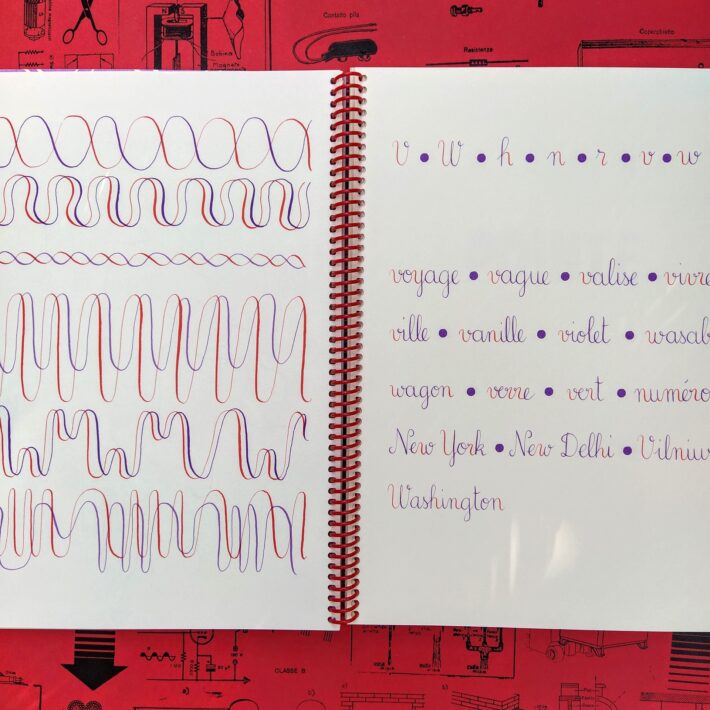 Contatto pila
Coperchietto
Resistenza
N S
Bobina
Magnete
V • W • h • n • r • v • w
voyage • vague • valise • vivre
ville • vanille • violet • wasab
wagon • verre • vert • numéro
New York • New Delhi • Vilniu
Washington
CLASSE B
a)
b)
c)